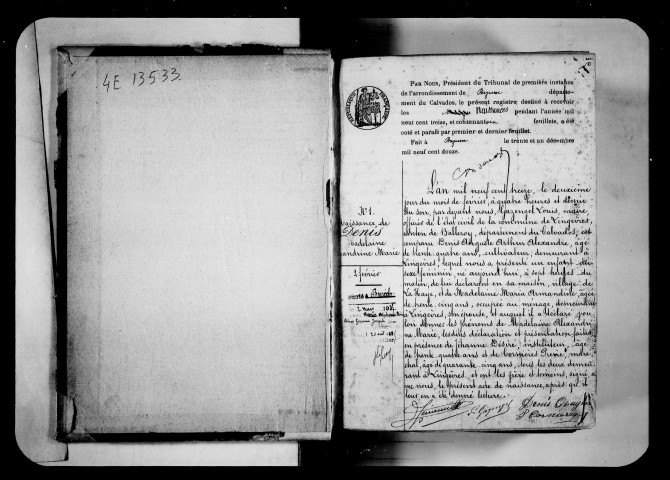 4E 13533
PAR NOUS, Président du Tribunal de première instance
de l'arrondissement de Bayeux départe-
ment du Calvados, le présent registre destiné à recevoir
les Naissances pendant l'année mil
neuf cent treize, et contenant feuillets, a été
coté et parafé par premier et dernier feuillet.
Fait à Bayeux le trente et un décembre
mil neuf cent douze.
N° 1.
Naissance de
Denis
Madelaine
Alexandrine Marie
2 février
L'an mil neuf cent treize, le deuxième
jour du mois de février, à quatre heures et demie
du soir, par devant nous, Louis, maire
officier de l'état civil de la commune de Lingèvres,
canton de Balleroy, département du Calvados, est
comparu Denis Auguste Arthur Alexandre, âgé
de trente quatre ans, cultivateur, demeurant à
Lingèvres, lequel nous a présenté un enfant du
sexe féminin, né aujourd'hui, à sept heures du
matin, de lui déclarant en sa maison, village de
La Haye, et de Madelaine Maria Armandine âgée
de trente cinq ans, occupée au ménage, demeurant
à Lingèvres, son épouse, et auquel il a déclaré vou-
loir donner les prénoms de Madelaine Alexandri-
ne Marie, lesdites déclaration et présentation faites
en présence de Jehanne Désiré, instituteur, âgé
de trente quatre ans et de René, maré-
chal, âgé de quarante cinq ans, tous les deux demeu-
rant à Lingèvres, et ont les père et témoins, signé a-
vec nous, le présent acte de naissance, après qu'il
leur en a été donné lecture.
Denis